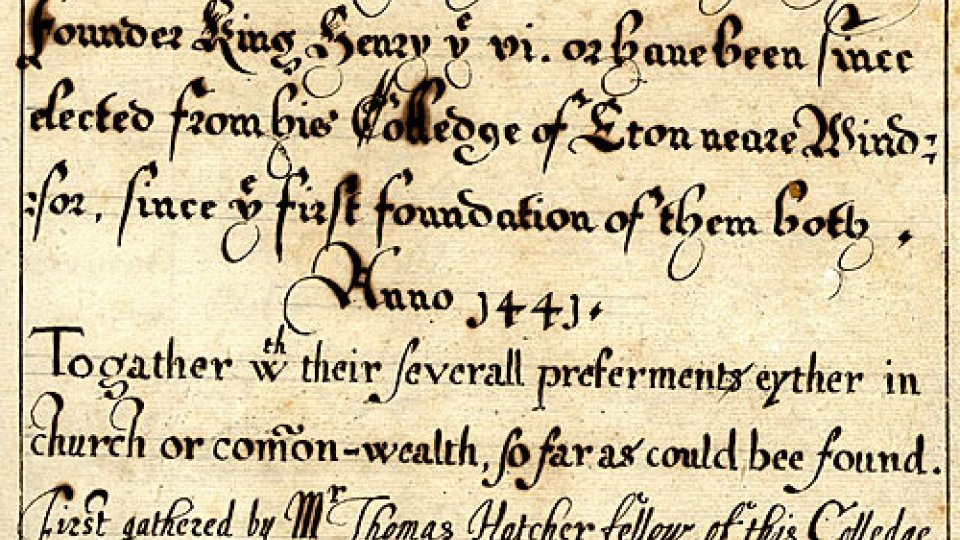 founder King Henry yͤ vi. or have been since
elected from his Colledge of Eton neare Wind:
:sor, since yͤ first foundation of them both,
Anno 1441.
Togather wᵗʰ their severall preferments eyther in
church or com̃on-wealth, so far as could bee found.
First gathered by Mʳ Thomas Hatcher fellow of this Colledge